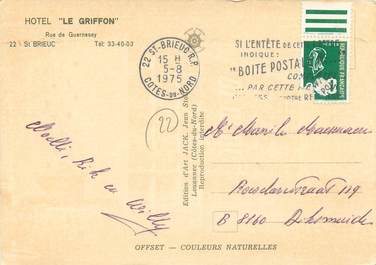 HOTEL "LE GRIFFON"
Rue de Guernesey
22 St BRIEUC Tél: 33-40-03
22 ST-BRIEUC R.P.
15 H
5-8
1975
COTES-DU-NORD
SI L'ENTÊTE DE
INDIQUE:
"BOITE POSTALE
PAR CETTE
RÉPUBLIQUE FRANÇAISE
22
Edition d'Art JACK, Jean
Louannec (Côtes-du-Nord)
Reproduction interdite
Noëlli, Rik en Willy
Roeselarestraat 119
B 8160 Diksmuide
OFFSET — COULEURS NATURELLES